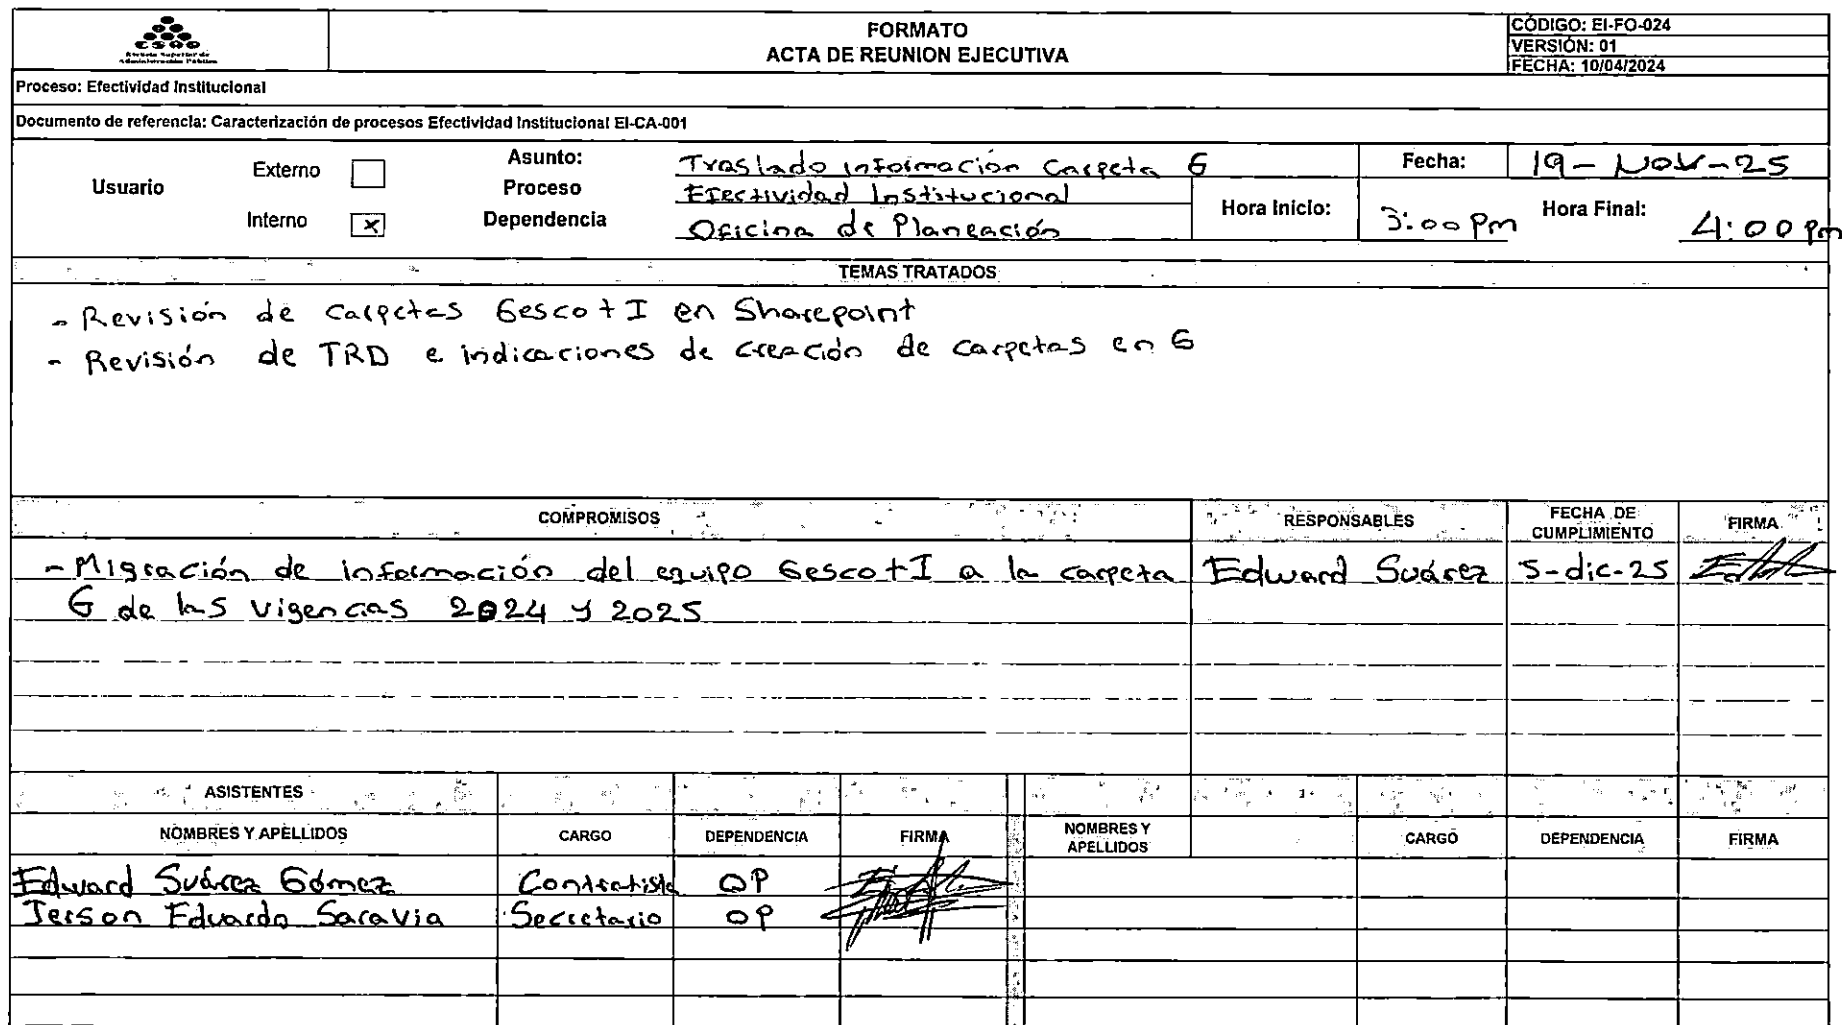 ESAP
Escuela Superior de
Administración Pública
FORMATO
ACTA DE REUNION EJECUTIVA
CÓDIGO: EI-FO-024
VERSIÓN: 01
FECHA: 10/04/2024
Proceso: Efectividad Institucional
Documento de referencia: Caracterización de procesos Efectividad Institucional EI-CA-001
Usuario
Externo
Interno X
Asunto: Traslado información Carpeta G
Proceso Efectividad Institucional
Dependencia Oficina de Planeación
Fecha: 19-Nov-25
Hora Inicio: 3:00 Pm
Hora Final: 4:00 pm
TEMAS TRATADOS
- Revisión de carpetas Gesco+I en Sharepoint
- Revisión de TRD e indicaciones de creación de carpetas en G
COMPROMISOS RESPONSABLES FECHA DE CUMPLIMIENTO FIRMA
- Migración de información del equipo Gesco+I a la carpeta Edward Suárez 5-dic-25
G de las vigencias 2024 y 2025
ASISTENTES
NOMBRES Y APELLIDOS CARGO DEPENDENCIA FIRMA NOMBRES Y APELLIDOS CARGO DEPENDENCIA FIRMA
Edward Suárez Gómez Contratista OP
Jerson Eduardo Saravia Secretario OP